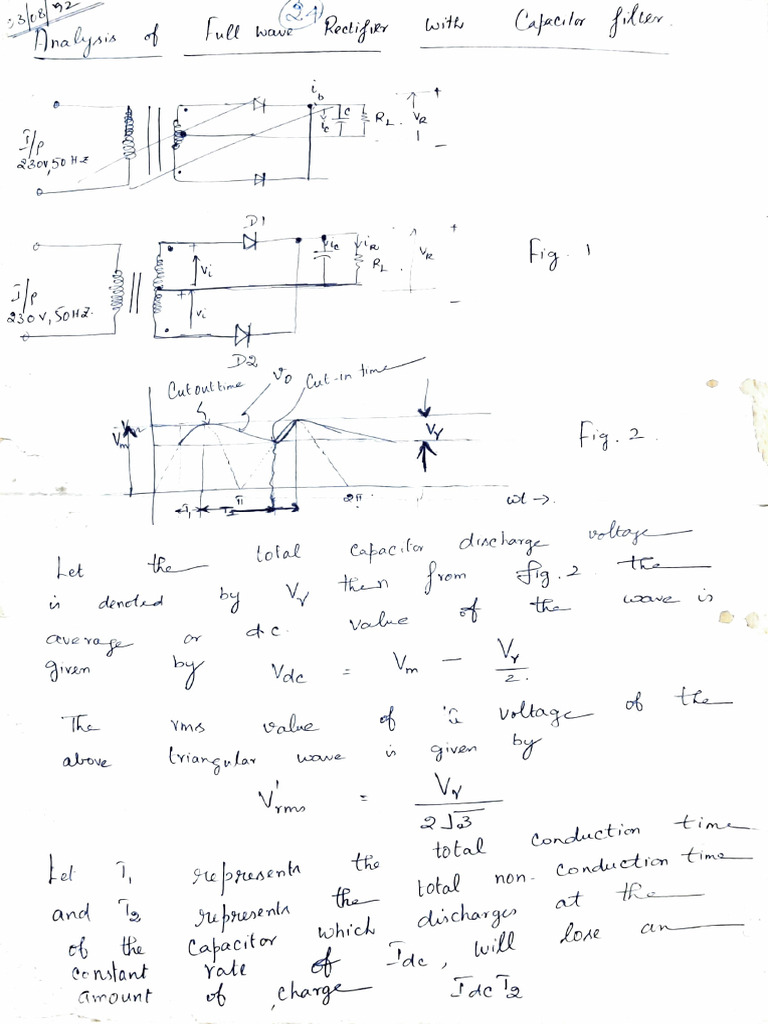 23/08/92
2.1
Analysis of Full wave Rectifier with Capacitor filter.
ib
ic C RL VR + -
I/P
230V, 50 Hz
D1
ic iR
Vi RL VR + -
Vi
I/P
230V, 50Hz.
D2
Fig. 1
Cut out time Vo Cut-in time
Vm
Vγ
Fig. 2
π 2π
T1 T2
wt →.
Let the total capacitor discharge voltage
is denoted by Vγ then from fig. 2 the
average or d.c. value of the wave is
given by Vdc = Vm - Vγ/2.
The rms value of voltage of the
above triangular wave is given by
V'rms = Vγ/2√3
Let T1 represents the total conduction time
and T2 represents the total non-conduction time
of the capacitor which discharges at the
constant rate of Idc, will lose an
amount of charge Idc T2